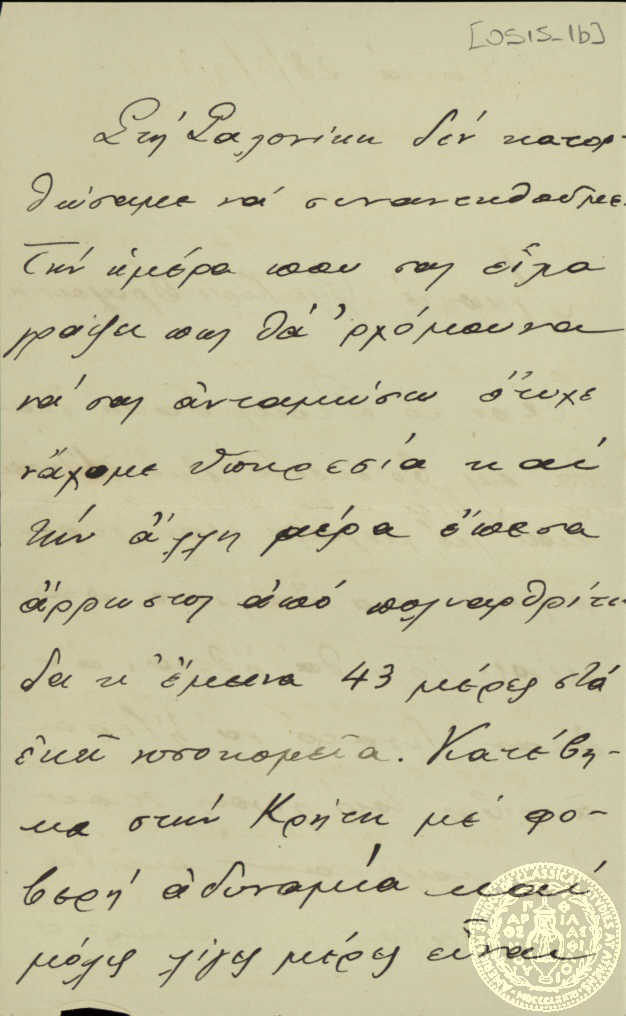 [OSIS-1b]
Στή Σαλονίκη δέν κατορ-
θώσαμε νά συναντηθοῦμε.
Τήν ἡμέρα που σας εἶχα
γράψει πως θά 'ρχόμουνα
νά σας ἀνταμώσω ἔτυχε
νἄχομε ὑπηρεσία καί
τήν ἄλλη μέρα ἔπεσα
ἄρρωστος ἀπό πολυαρθρίτι
δα κ' ἔμεινα 43 μέρες στά
ἐκεῖ νοσοκομεῖα. Κατέβη-
κα στήν Κρήτη μέ φο-
βερή ἀδυναμία καί
μόλις λίγες μέρες εἶναι